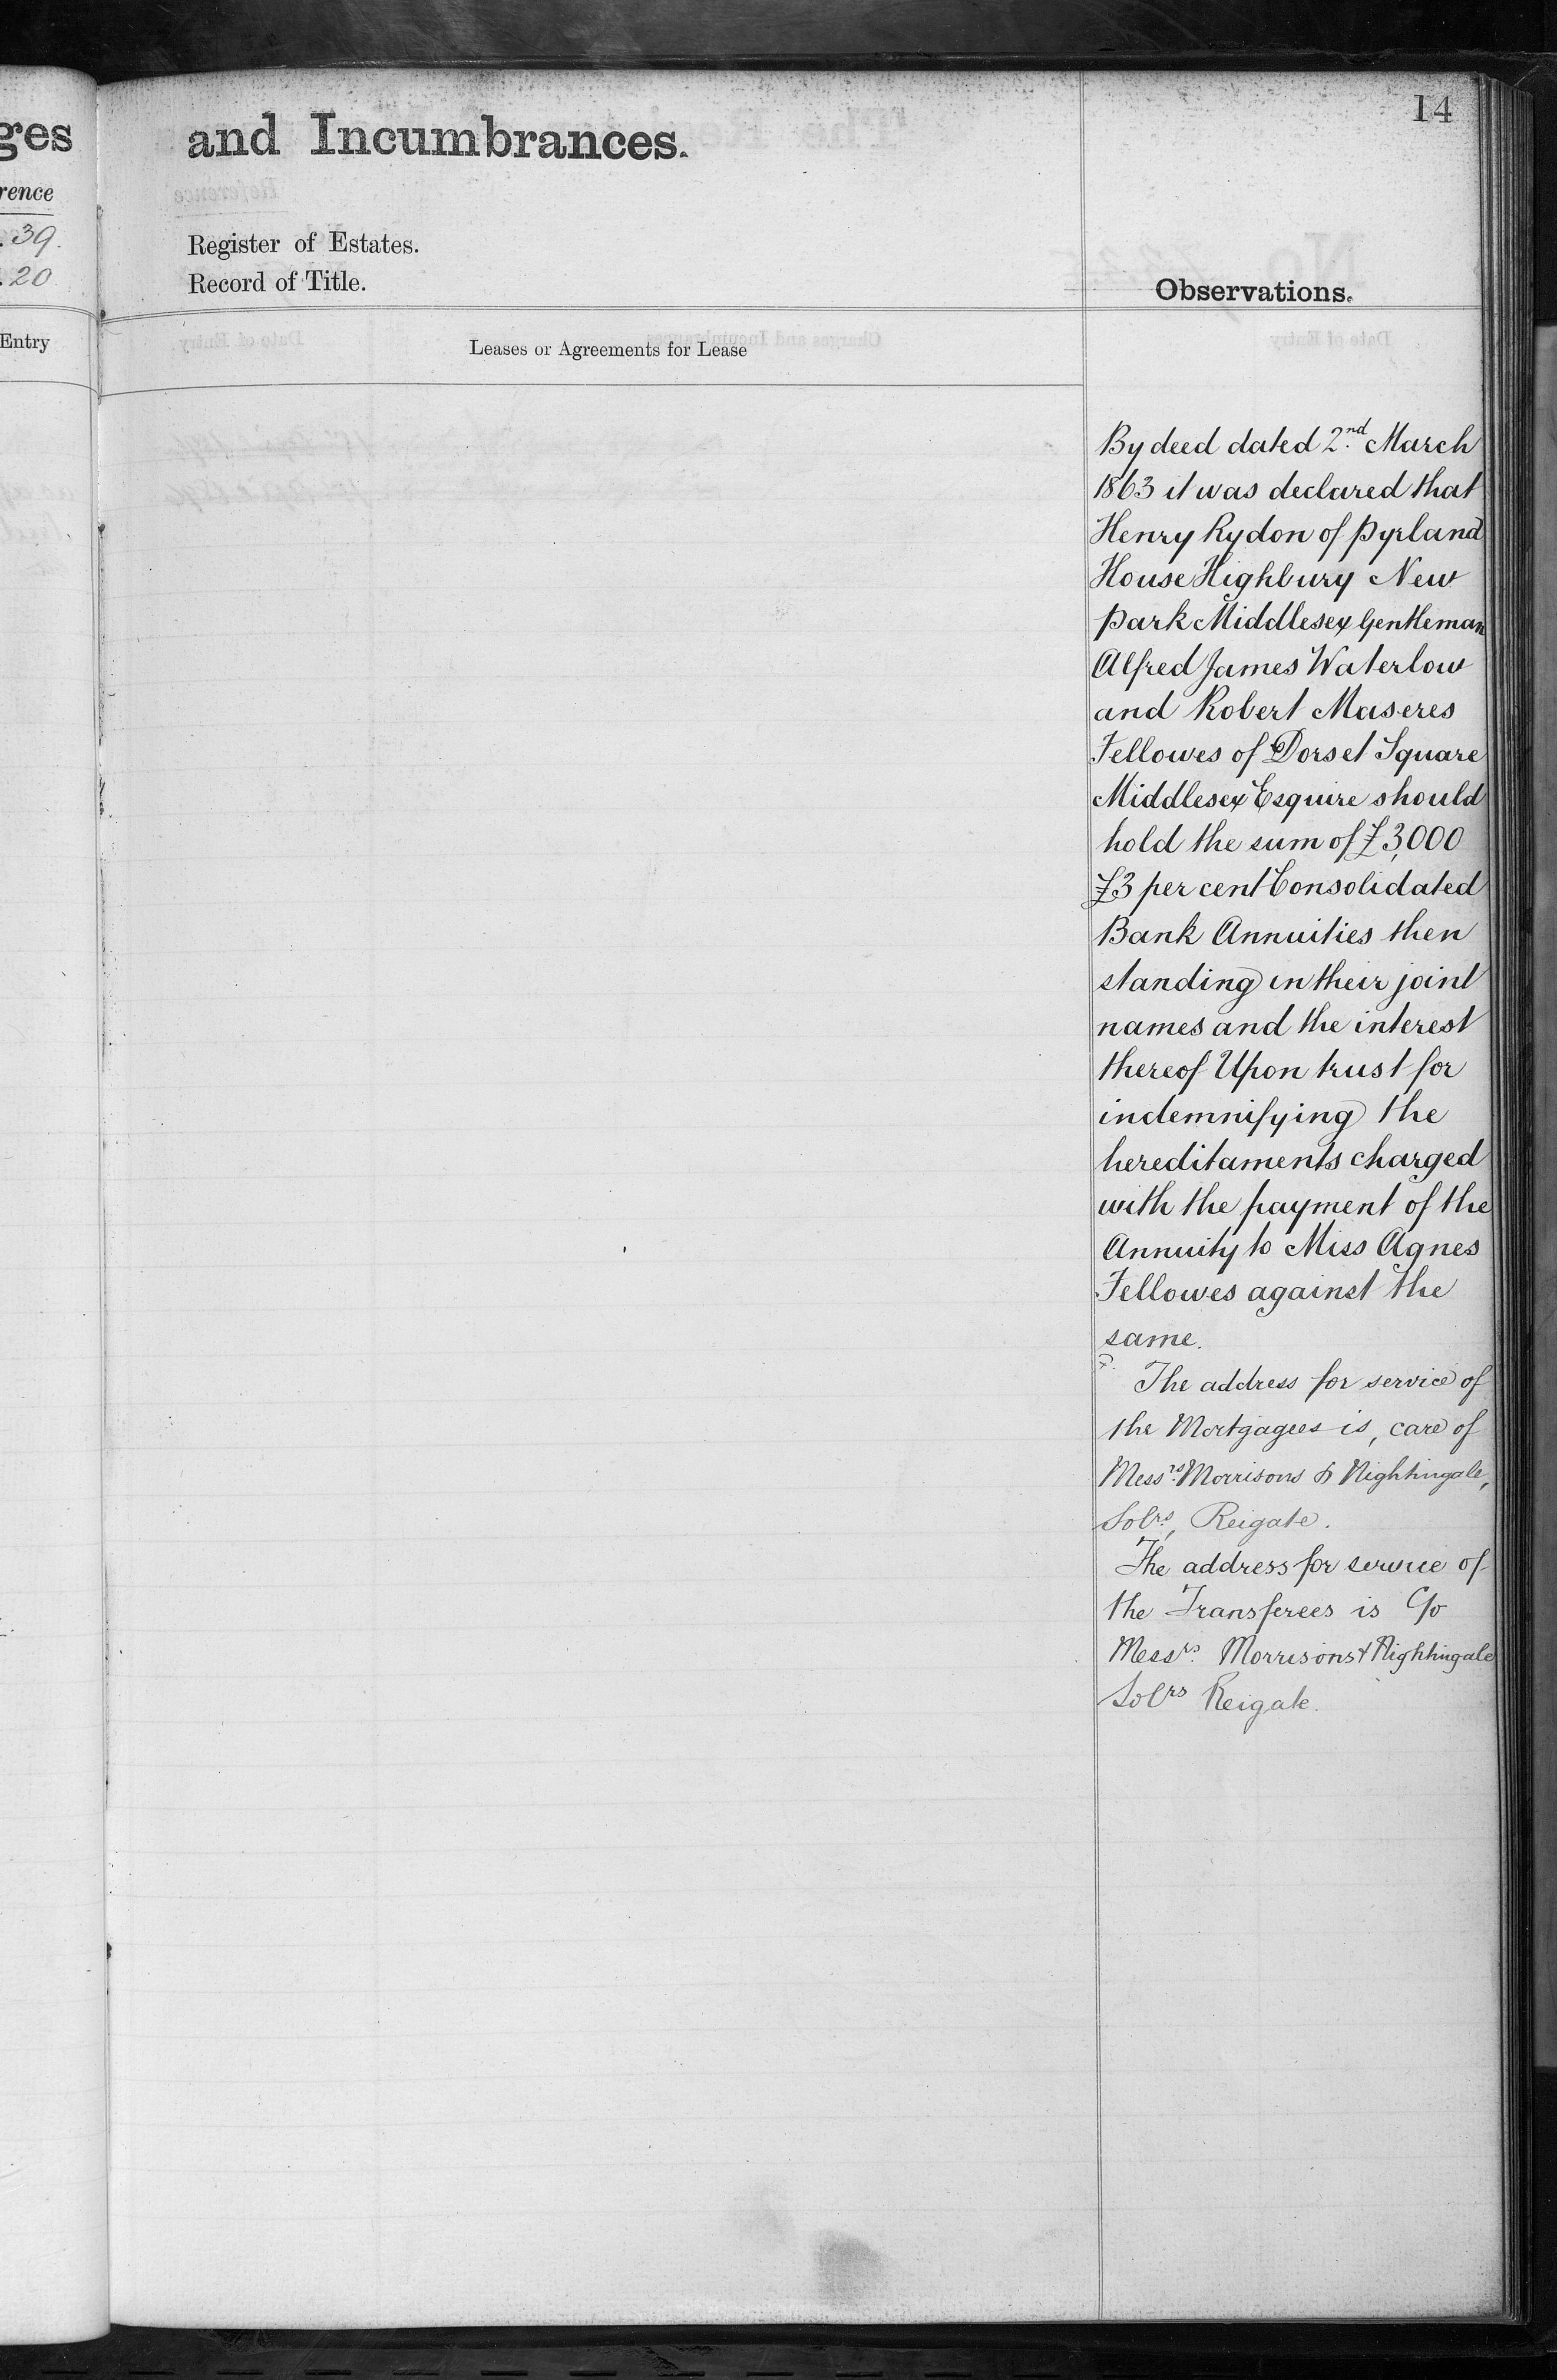 ges
rence
. 39.
. 20
Entry
14
and Incumbrances.
Register of Estates.
Record of Title.
Observations.
Leases or Agreements for Lease
By deed dated 2nd. March
1863 it was declared that
Henry Rydon of Pyrland
House Highbury New
Park Middlesex Gentleman
Alfred James Waterlow
and Robert Maseres
Fellowes of Dorset Square
Middlesex Esquire should
hold the sum of £3,000
£3 per cent Consolidated
Bank Annuities then
standing in their joint
names and the interest
thereof Upon trust for
indemnifying the
hereditaments charged
with the payment of the
Annuity to Miss Agnes
Fellowes against the
same.
The address for service of
the Mortgagees is, care of
Messrs. Morrisons & Nightingale,
Solrs, Reigate.
The address for service of
the Transferees is C/o
Messrs. Morrisons & Nightingale
Solrs Reigate.